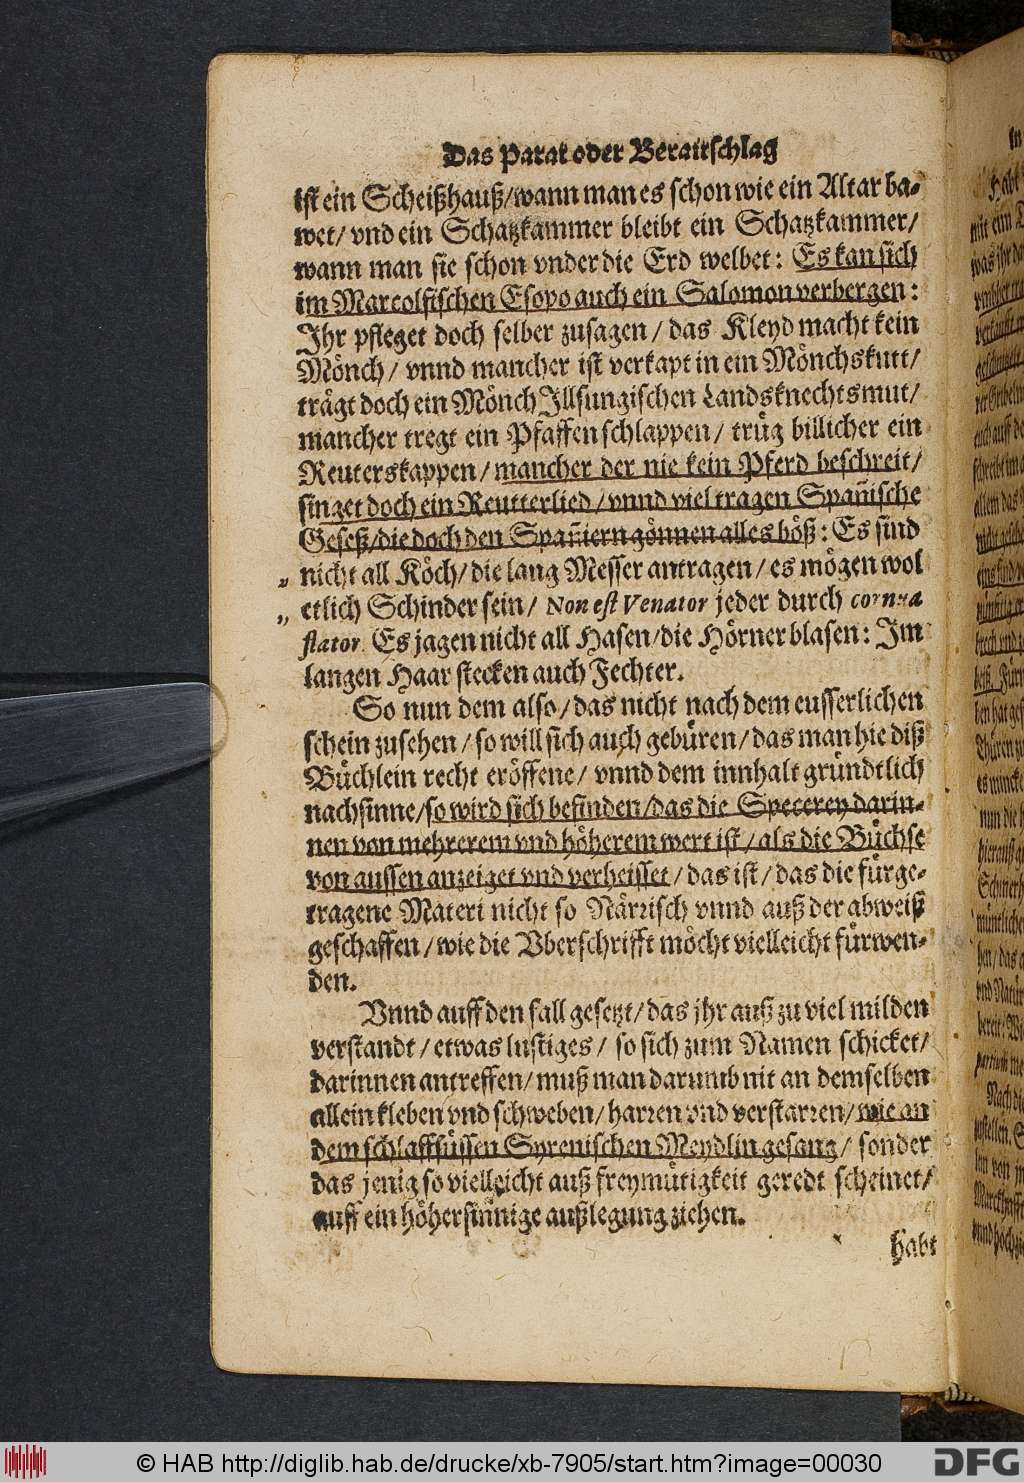 Das Parat oder Beratrschlag
ist ein Scheißhauß/wann man es schon wie ein Altar ba-
wet/ vnd ein Schatzkammer bleibt ein Schatzkammer/
wann man sie schon vnder die Erd welbet: Es kan sich
im Marcolfischen Esopo auch ein Salomon verbergen:
Ihr pfleget doch selber zusagen/ das Kleyd macht kein
Mönch/ vnnd mancher ist verkapt in ein Mönchskutt/
trägt doch ein Mönch Illsungischen Landsknechtsmut/
mancher tregt ein Pfaffenschlappen/ trüg billicher ein
Reuterskappen/ mancher der nie kein Pferd beschreit/
singet doch ein Reutterlied/ vnnd viel tragen Spañische
Geseß/die doch den Spañiern gönnen alles böß: Es sind
„ nicht all Köch/ die lang Messer antragen/ es mögen wol
„ etlich Schinder sein/ Non est Venator jeder durch cornua
flator. Es jagen nicht all Hasen/die Hörner blasen: Im
langen Haar stecken auch Fechter.
So nun dem also/ das nicht nach dem eusserlichen
schein zusehen/ so will sich auch gebüren/ das man hie diß
Büchlein recht eröffene/ vnnd dem innhalt gründtlich
nachsinne/so wird sich befinden/das die Specerey darin-
nen von mehrerem vnd höherem wert ist/ als die Büchse
von aussen anzeiget vnd verheisset/ das ist/ das die fürge-
tragene Materi nicht so Närrisch vnnd auß der abweiß
geschaffen/ wie die Vberschrifft möcht vielleicht fürwen-
den.
Vnnd auff den fall gesetzt/ das jhr auß zu viel milden
verstandt/ etwas lustiges/ so sich zum Namen schicket/
darinnen antreffen/ muß man darumb nit an demselben
allein kleben vnd schweben/ harren vnd verstarren/ wie an
dem schlaffsüssen Syrenischen Meydlin gesang/ sonder
das jenig so vielleicht auß freymütigkeit geredt scheinet/
auff ein höhersinnige außlegung ziehen.
habt
© HAB http://diglib.hab.de/drucke/xb-7905/start.htm?image=00030
DFG